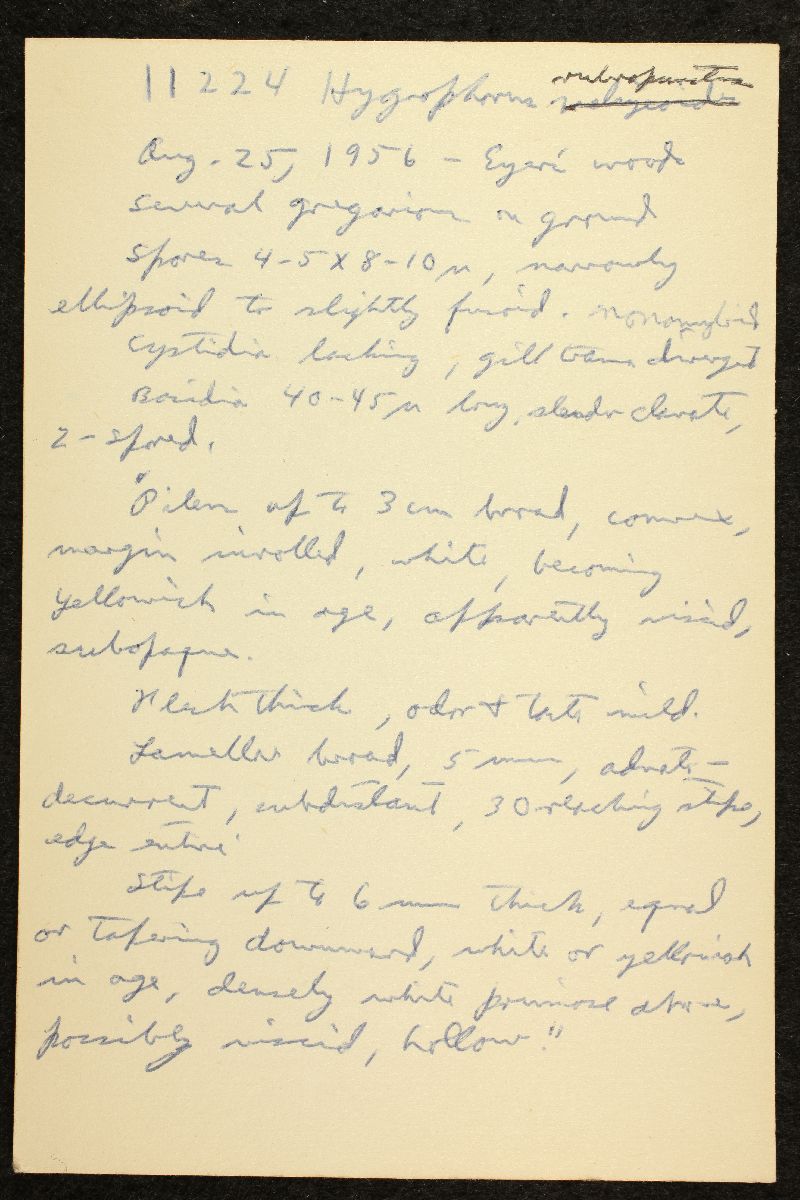 rubropunctus
11224 Hygrophorus
Aug. 25, 1956 - woods
several gregarious on ground
Spores 4-5 X 8-10 µ, narrowly
ellipsoid to slightly fusoid. nonamyloid
Cystidia lacking, gill trama divergent
Basidia 40-45 µ long, slender clavate,
2-spored.
"Pileus up to 3 cm broad, convex,
margin inrolled, white, becoming
yellowish in age, apparently viscid,
subopaque.
Flesh thick, odor & taste mild.
Lamellae broad, 5 mm, adnate-
decurrent, subdistant, 30 reaching stipe,
edge entire
Stipe up to 6 mm thick, equal
or tapering downward, white or yellowish
in age, densely white pruinose above,
possibly viscid, hollow."